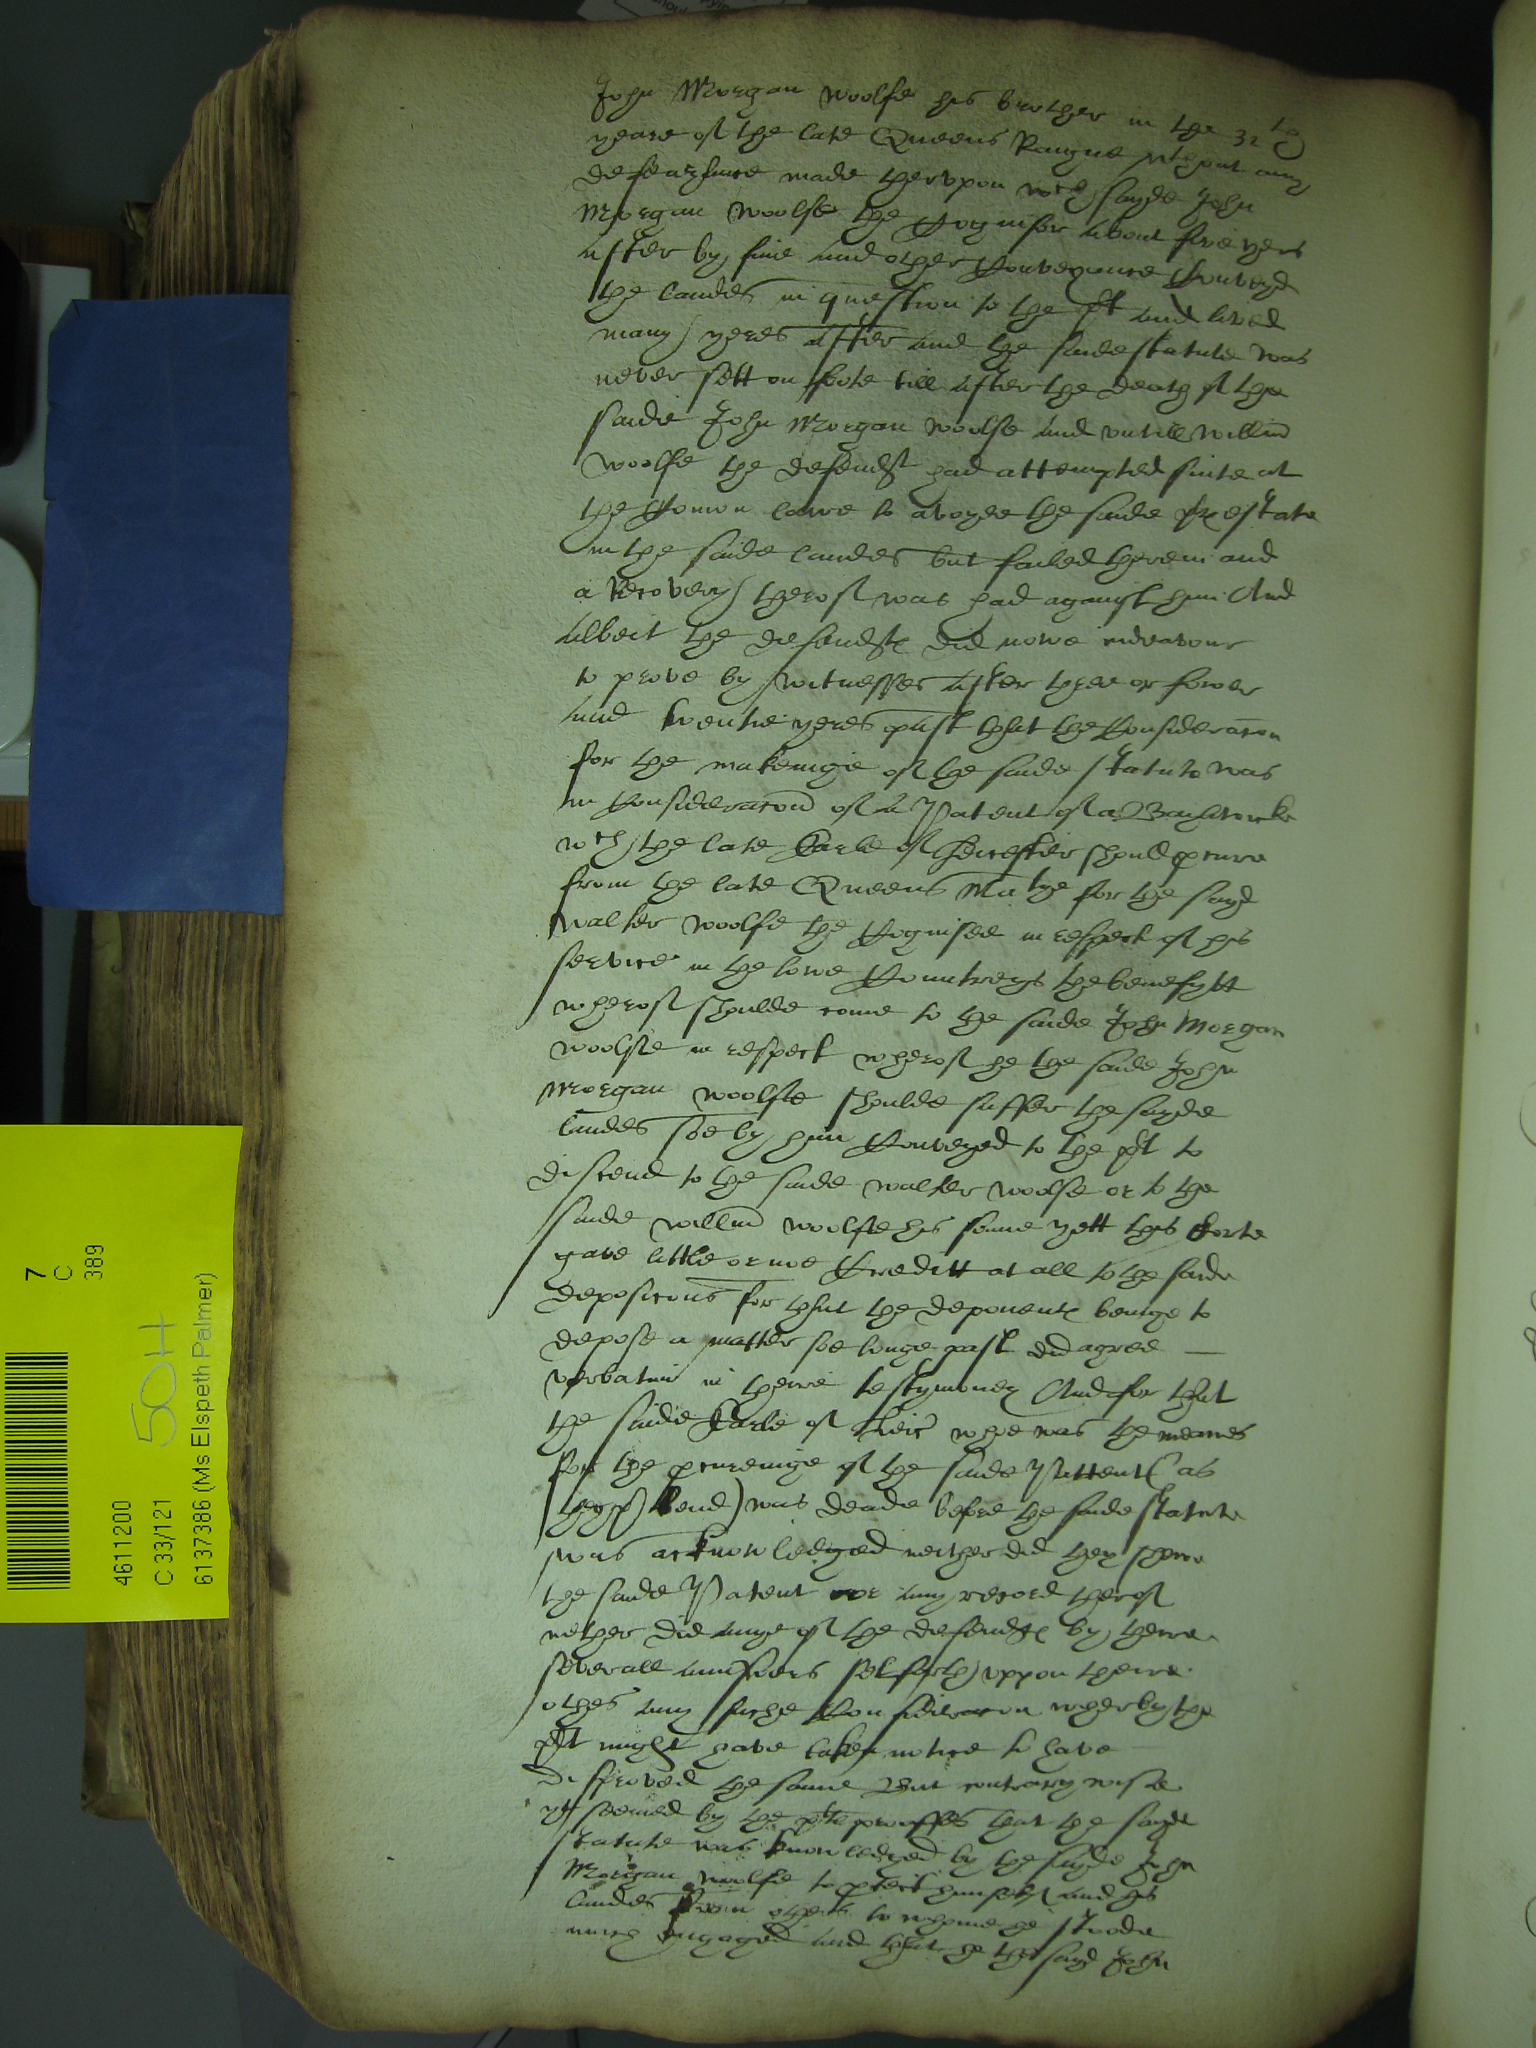 John Morgan Woolfe his brother in the 32th
yeare of the late Queens Raigne wthout any
defeazance made therupon wch sayde John
Morgan Woolfe the Cognisor about five yers
after by fine and other Conveyance Conveyd
the landes in question to the plt and lived
many yeres after and the saide statute was
never sett on foote till after the death of the
saide John Morgan Woolfe and untill Willm
Woolfe the defendt had attempted suite at
the Comon lawe to avoyde the saide estate
in the saide landes but failed therein and
a Recovery therof was had against him And
Albeit the defendts did nowe indeavour
to prove by witnesses after three or fower
and twentie yeres past that the Consideracon
for the makeinge of the saide statute was
in Consideracon of A Patent of a Bayliwicke
wch the late Earle of Leicester should pcure
from the late Queens Matye for the sayd
Walter Woolfe the Cognisee in respect of his
service in the lowe Countreys the benefytt
wherof shoulde come to the saide John Morgan
Woolfe in respect wherof he the saide John
Morgan Woolfe shoulde suffer the sayde
landes soe by him Conveyed to the plt to
discend to the saide Walter Woolfe or to the
saide Willm Woolfe his sonne yett this Corte
gave little or noe Creditt at all to the saide
deposicons for that the deponents beinge to
depose a matter soe longe past did agree
verbatim in theire testymoney And for that
the saide Earle of Leic whoe was the meanes
for the pcureinge of the saide Pattent (as
they ptend) was deade before the saide statute
was acknowledged neither did they shewe
the saide Patent nor any record therof
nether did anye of the defendts by theire
severall answers set forth uppon theire
othes any suche Consideracon wherby the
plt might have taken notice to have
disproved the same But contrary wise
ytt seemed by the plts prooffes that the sayde
statute was knowledged by the sayde John
Morgan Woolfe to ptect himself and his
landes from others to whome he stoode
much engaged and that he the sayd John
7
C
389
4611200
C 33/121
50H
6137386 (Ms Elspeth Palmer)